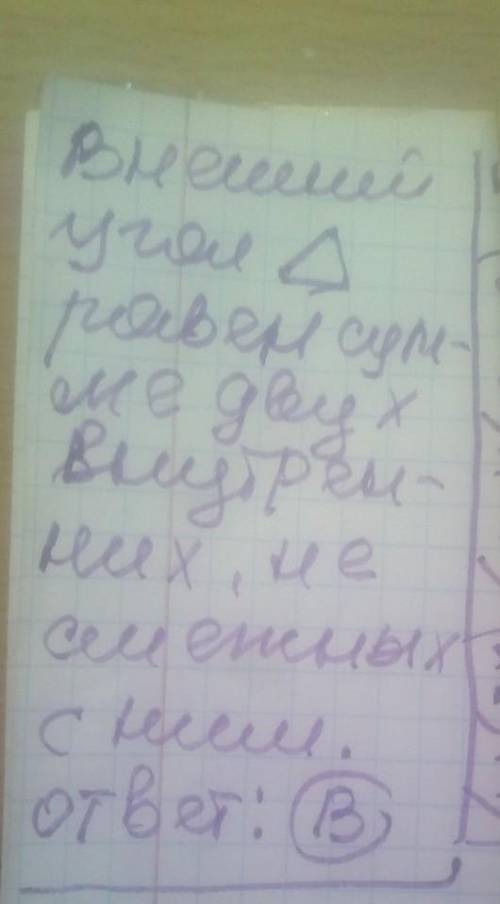 Внешний
угол △
равен сум-
ме двух
внутрен-
них, не
смежных
с ним.
ответ: В